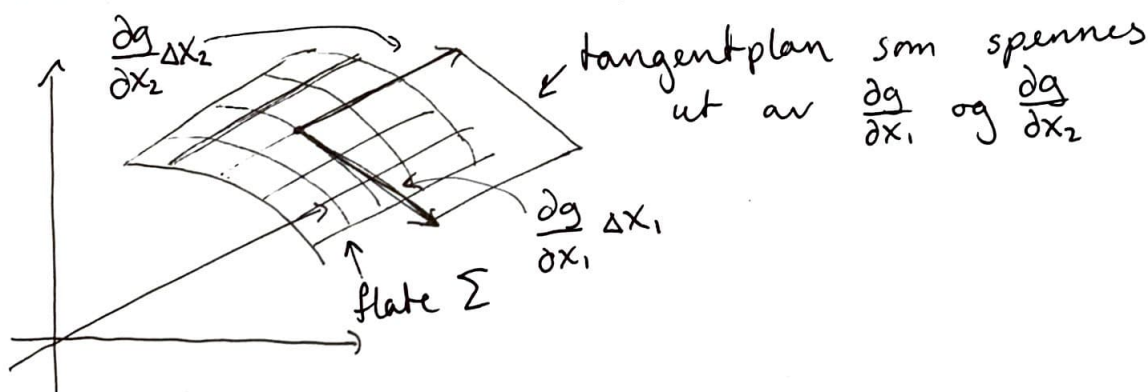 ∂g/∂x₂ Δx₂
tangentplan som spennes
ut av ∂g/∂x₁ og ∂g/∂x₂
∂g/∂x₁ Δx₁
flate Σ